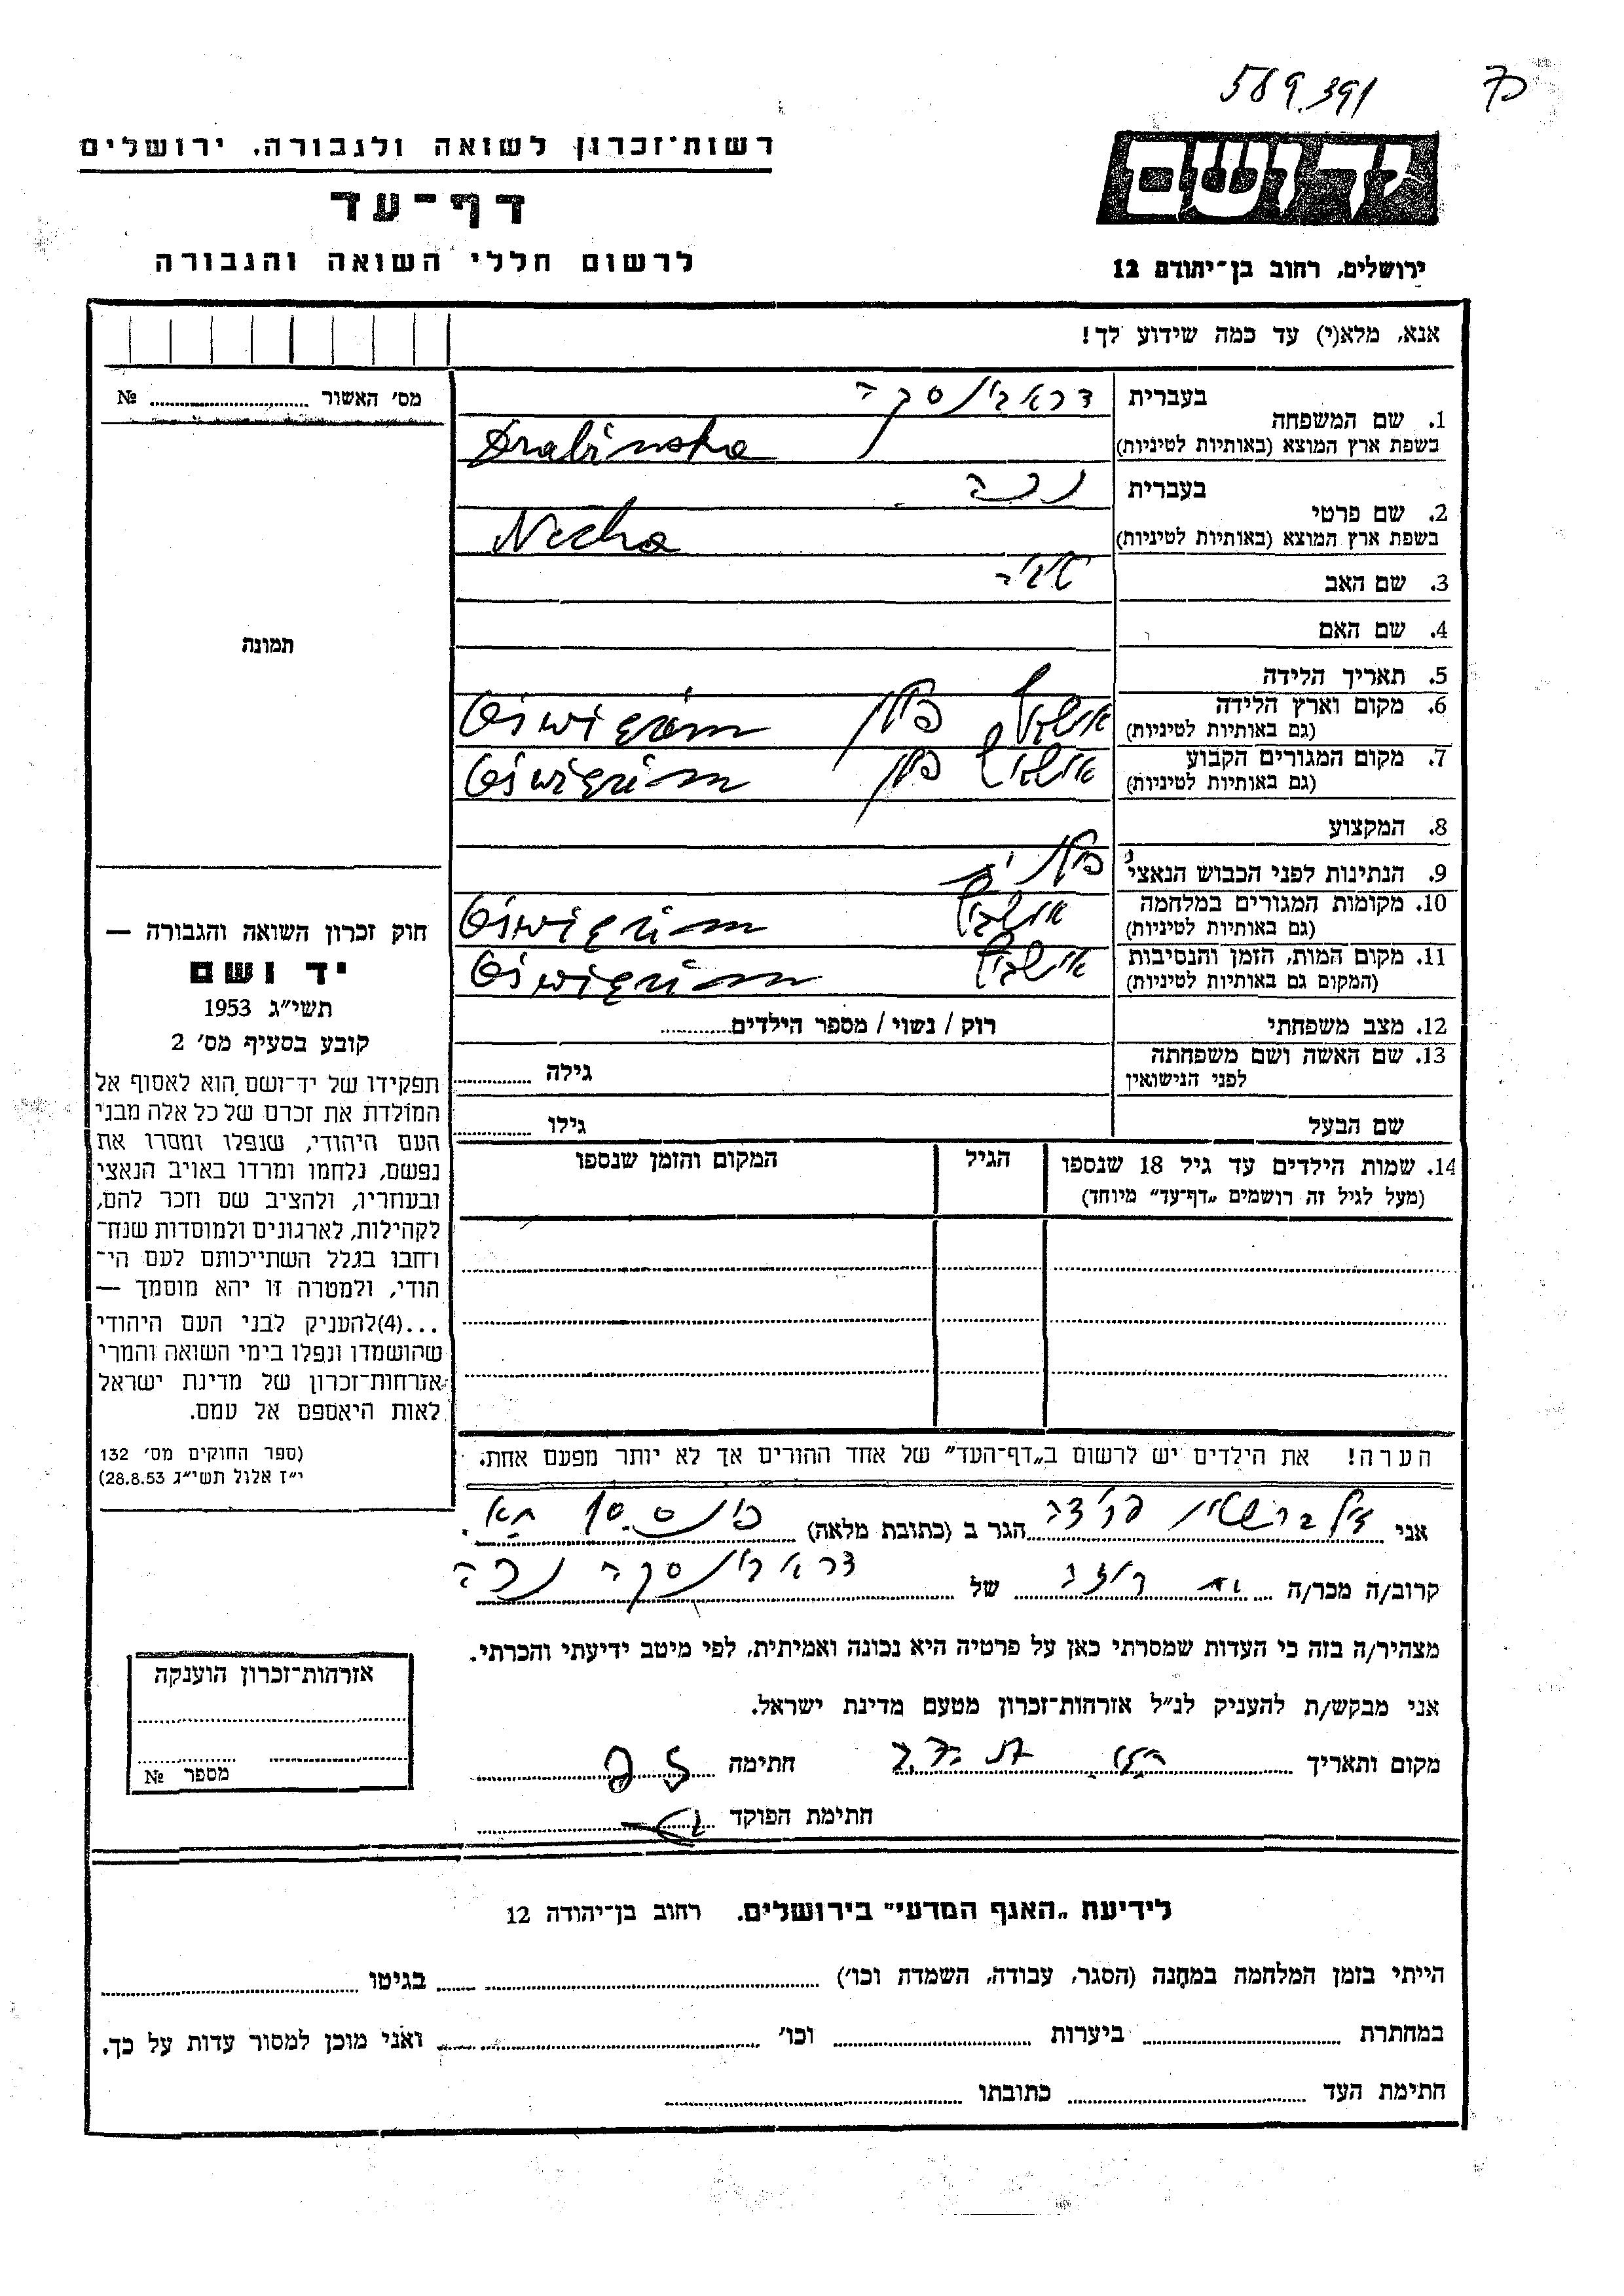 569.391
רשות־זכרון לשואה ולגבורה. ירושלים
דף־עד
לרשום חללי השואה והגבורה
יד ושם
ירושלים, רחוב בן־יהודה 12
אנא, מלא(י) עד כמה שידוע לך!
מס׳ האשור ........ №
תמונה
חוק זכרון השואה והגבורה —
יד ושם
תשי״ג 1953
קובע בסעיף מס׳ 2
תפקידו של יד־ושם הוא לאסוף אל
המולדת את זכרם של כל אלה מבני
העם היהודי, שנפלו ומסרו את
נפשם, נלחמו ומרדו באויב הנאצי
ובעוזריו, ולהציב שם וזכר להם,
לקהילות, לארגונים ולמוסדות שנח־
רחבו בגלל השתייכותם לעם הי־
הודי, ולמטרה זו יהא מוסמך —
...(4)להעניק לבני העם היהודי
שהושמדו ונפלו בימי השואה והמרי
אזרחות־זכרון של מדינת ישראל
לאות היאספם אל עמם.
(ספר החוקים מס׳ 132
י״ז אלול תשי״ג 28.8.53)
1. שם המשפחה בעברית דראבינסקה
בשפת ארץ המוצא (באותיות לטיניות) Drabinska
2. שם פרטי בעברית נכה
בשפת ארץ המוצא (באותיות לטיניות) Necha
3. שם האב
4. שם האם
5. תאריך הלידה
6. מקום וארץ הלידה
(גם באותיות לטיניות) פולין Oświęcim
7. מקום המגורים הקבוע
(גם באותיות לטיניות) פולין Oświęcim
8. המקצוע
9. הנתינות לפני הכבוש הנאצי פולנית
10. מקומות המגורים במלחמה
(גם באותיות לטיניות) Oświęcim
11. מקום המות, הזמן והנסיבות
(המקום גם באותיות לטיניות) Oświęcim
12. מצב משפחתי רוק / נשוי / מספר הילדים........
13. שם האשה ושם משפחתה
לפני הנישואין גילה ........
שם הבעל גילו ........
14. שמות הילדים עד גיל 18 שנספו הגיל המקום והזמן שנספו
(מעל לגיל זה רושמים „דף־עד״ מיוחד)
הערה! את הילדים יש לרשום ב„דף־העד״ של אחד ההורים אך לא יותר מפעם אחת.
אני זילברשטיין הגר ב (כתובת מלאה) פינס 10
קרוב/ה מכר/ה של דראבינסקה נכה
מצהיר/ה בזה כי העדות שמסרתי כאן על פרטיה היא נכונה ואמיתית, לפי מיטב ידיעתי והכרתי.
אני מבקש/ת להעניק לנ״ל אזרחות־זכרון מטעם מדינת ישראל.
מקום ותאריך חתימה
חתימת הפוקד
אזרחות־זכרון הוענקה
מספר №
לידיעת „האגף המדעי״ בירושלים. רחוב בן־יהודה 12
הייתי בזמן המלחמה במחנה (הסגר, עבודה, השמדה וכו׳) ........ בגיטו ........
במחתרת ........ ביערות ........ וכו׳ ........ ואני מוכן למסור עדות על כך.
חתימת העד ........ כתובתו ........